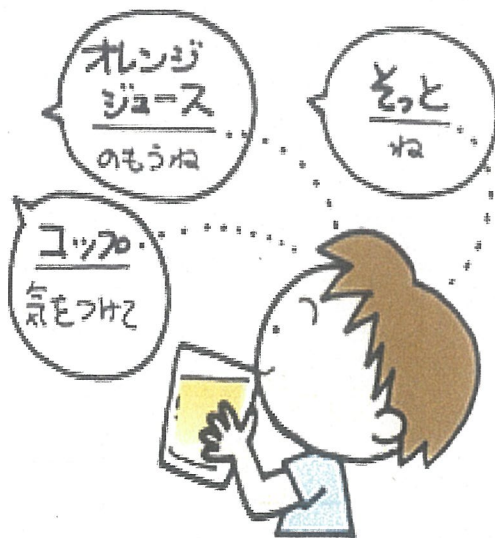 オレンジ
ジュース
のもうね
そっと
ね
コップ
気をつけて